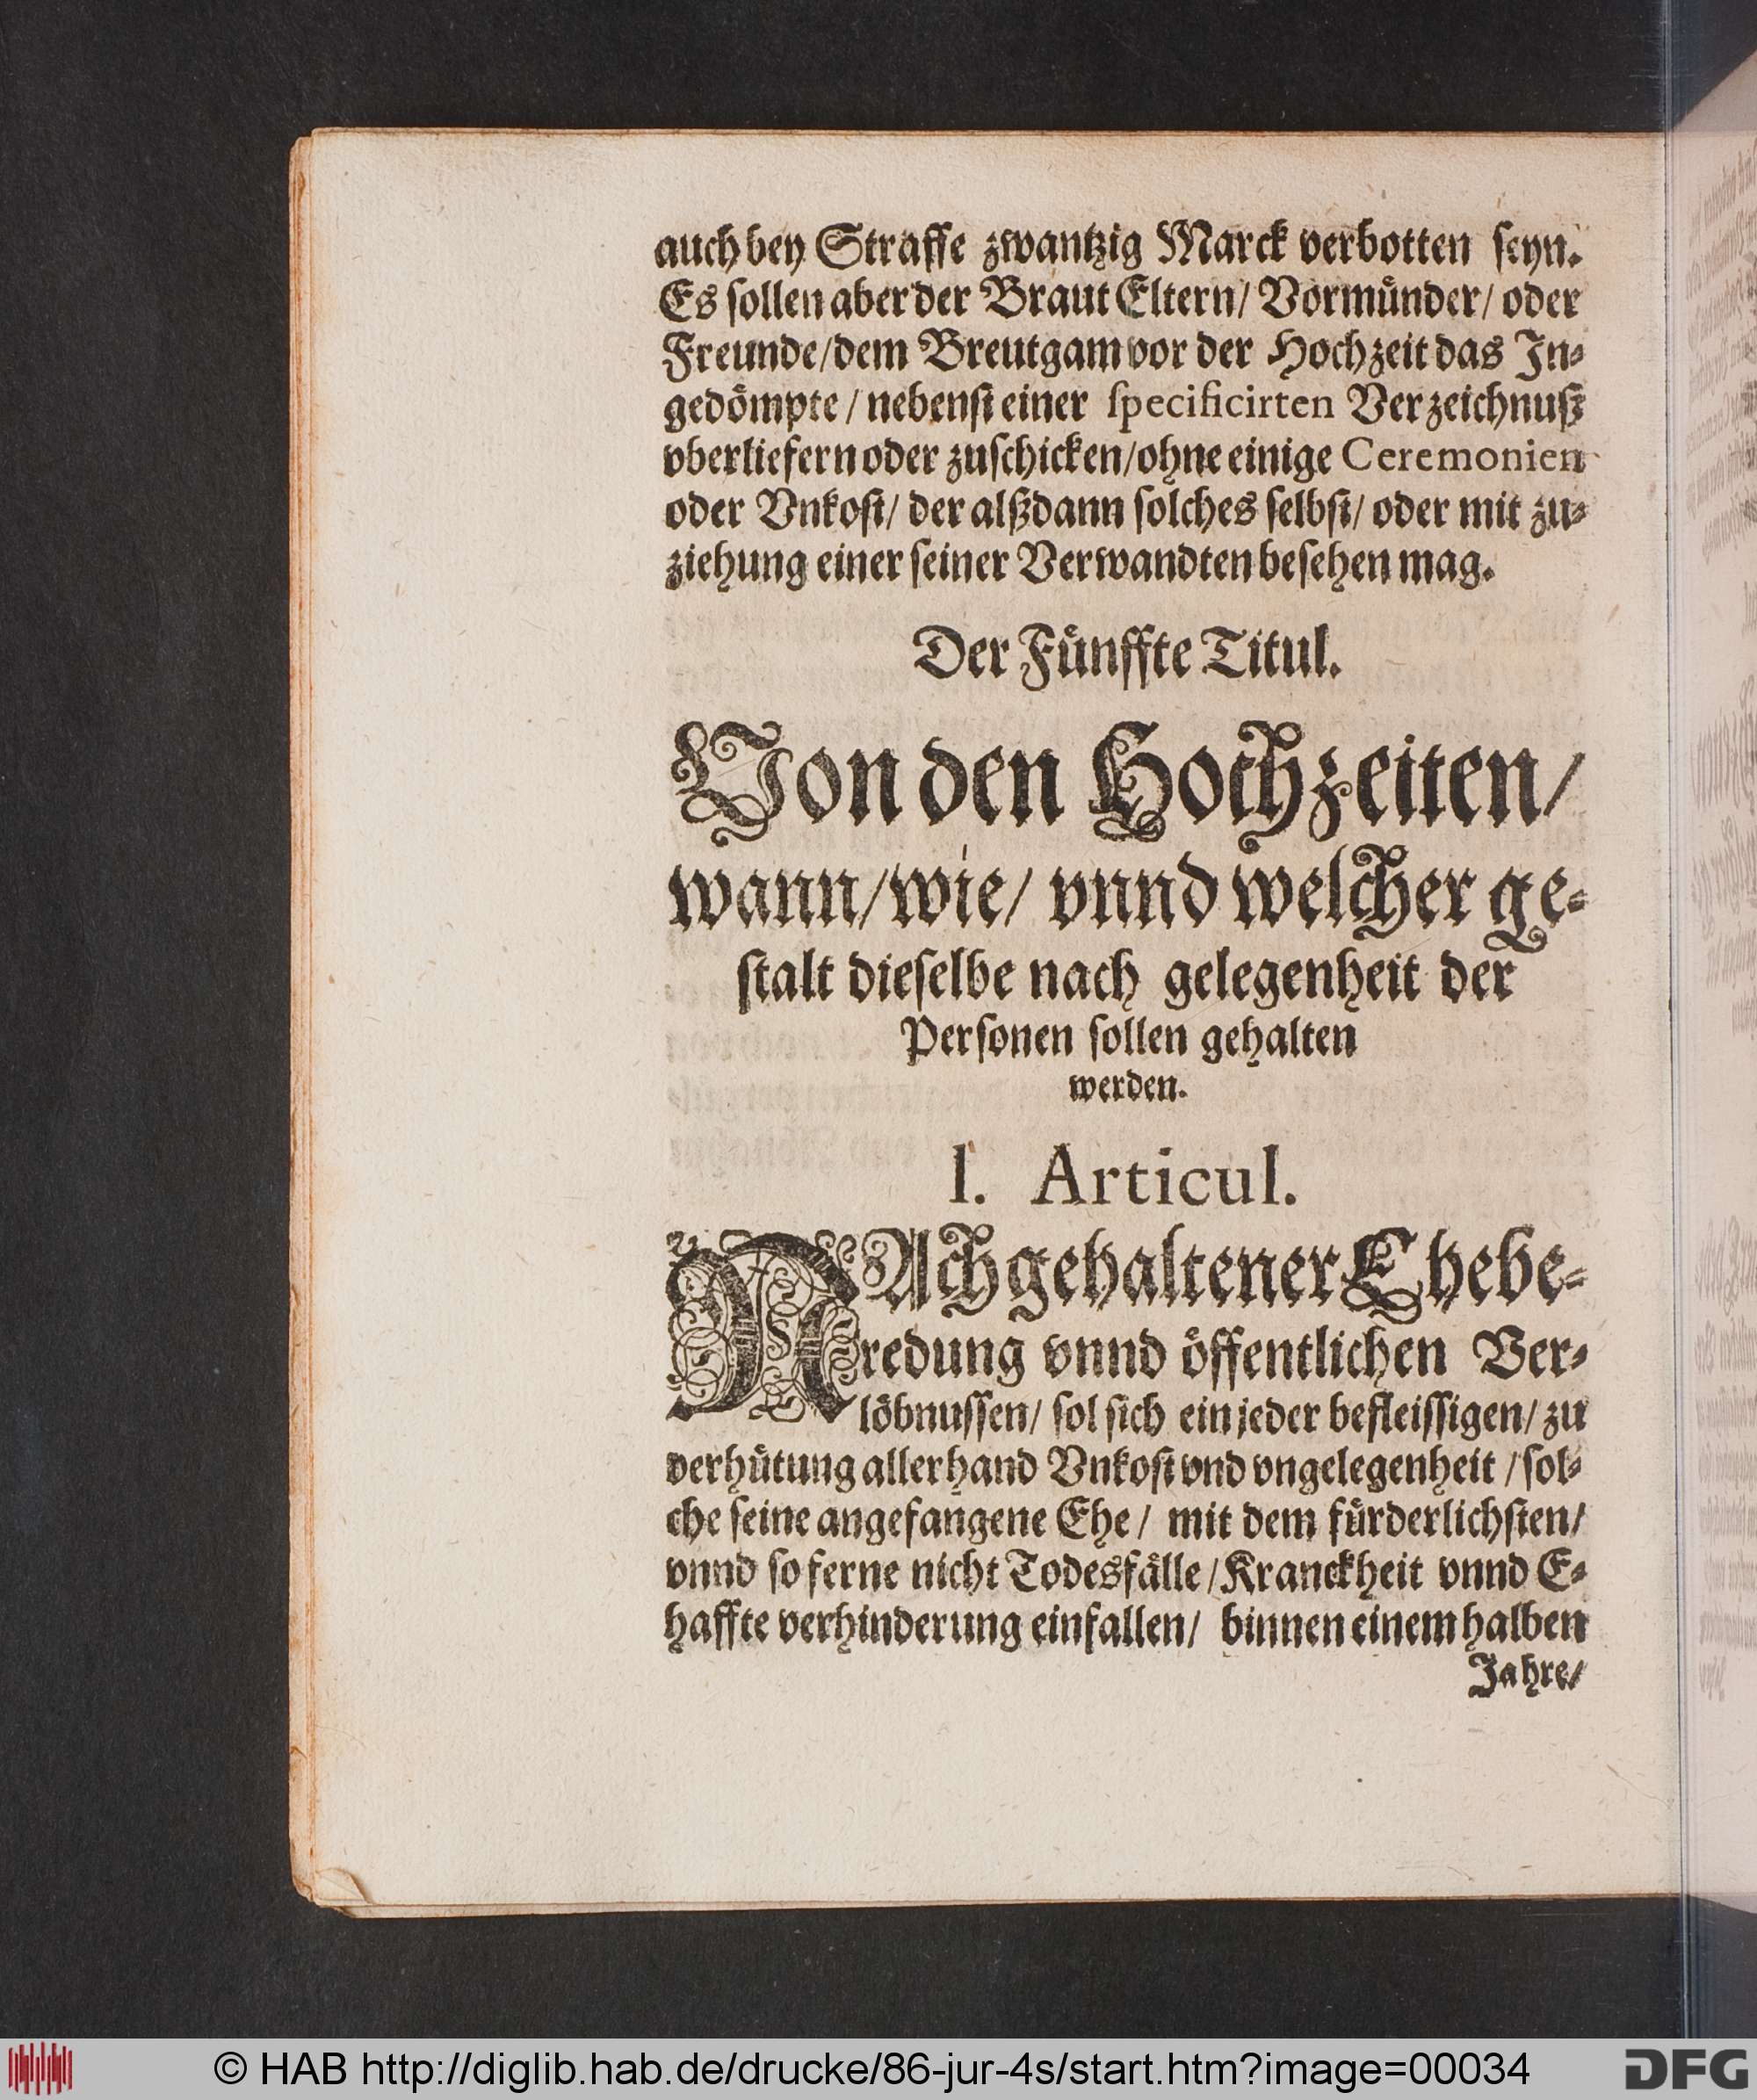 auch bey Straffe zwantzig Marck verbotten seyn.
Es sollen aber der Braut Eltern/ Vormünder/ oder
Freunde/dem Breutgam vor der Hochzeit das In-
gedömpte / nebenst einer specificirten Verzeichnuß
vberliefern oder zuschicken/ohne einige Ceremonien
oder Vnkost/ der alßdann solches selbst/ oder mit zu-
ziehung einer seiner Verwandten besehen mag.
Der Fünffte Titul.
Von den Hochzeiten/
wann/wie/ vnnd welcher ge-
stalt dieselbe nach gelegenheit der
Personen sollen gehalten
werden.
I. Articul.
NAch gehaltener Ehebe-
redung vnnd öffentlichen Ver-
löbnussen/ sol sich ein jeder befleissigen/ zu
verhütung allerhand Vnkost vnd vngelegenheit / sol-
che seine angefangene Ehe / mit dem fürderlichsten/
vnnd so ferne nicht Todesfälle /Kranckheit vnnd E-
haffte verhinderung einfallen/ binnen einem halben
Jahre/
© HAB http://diglib.hab.de/drucke/86-jur-4s/start.htm?image=00034
DFG